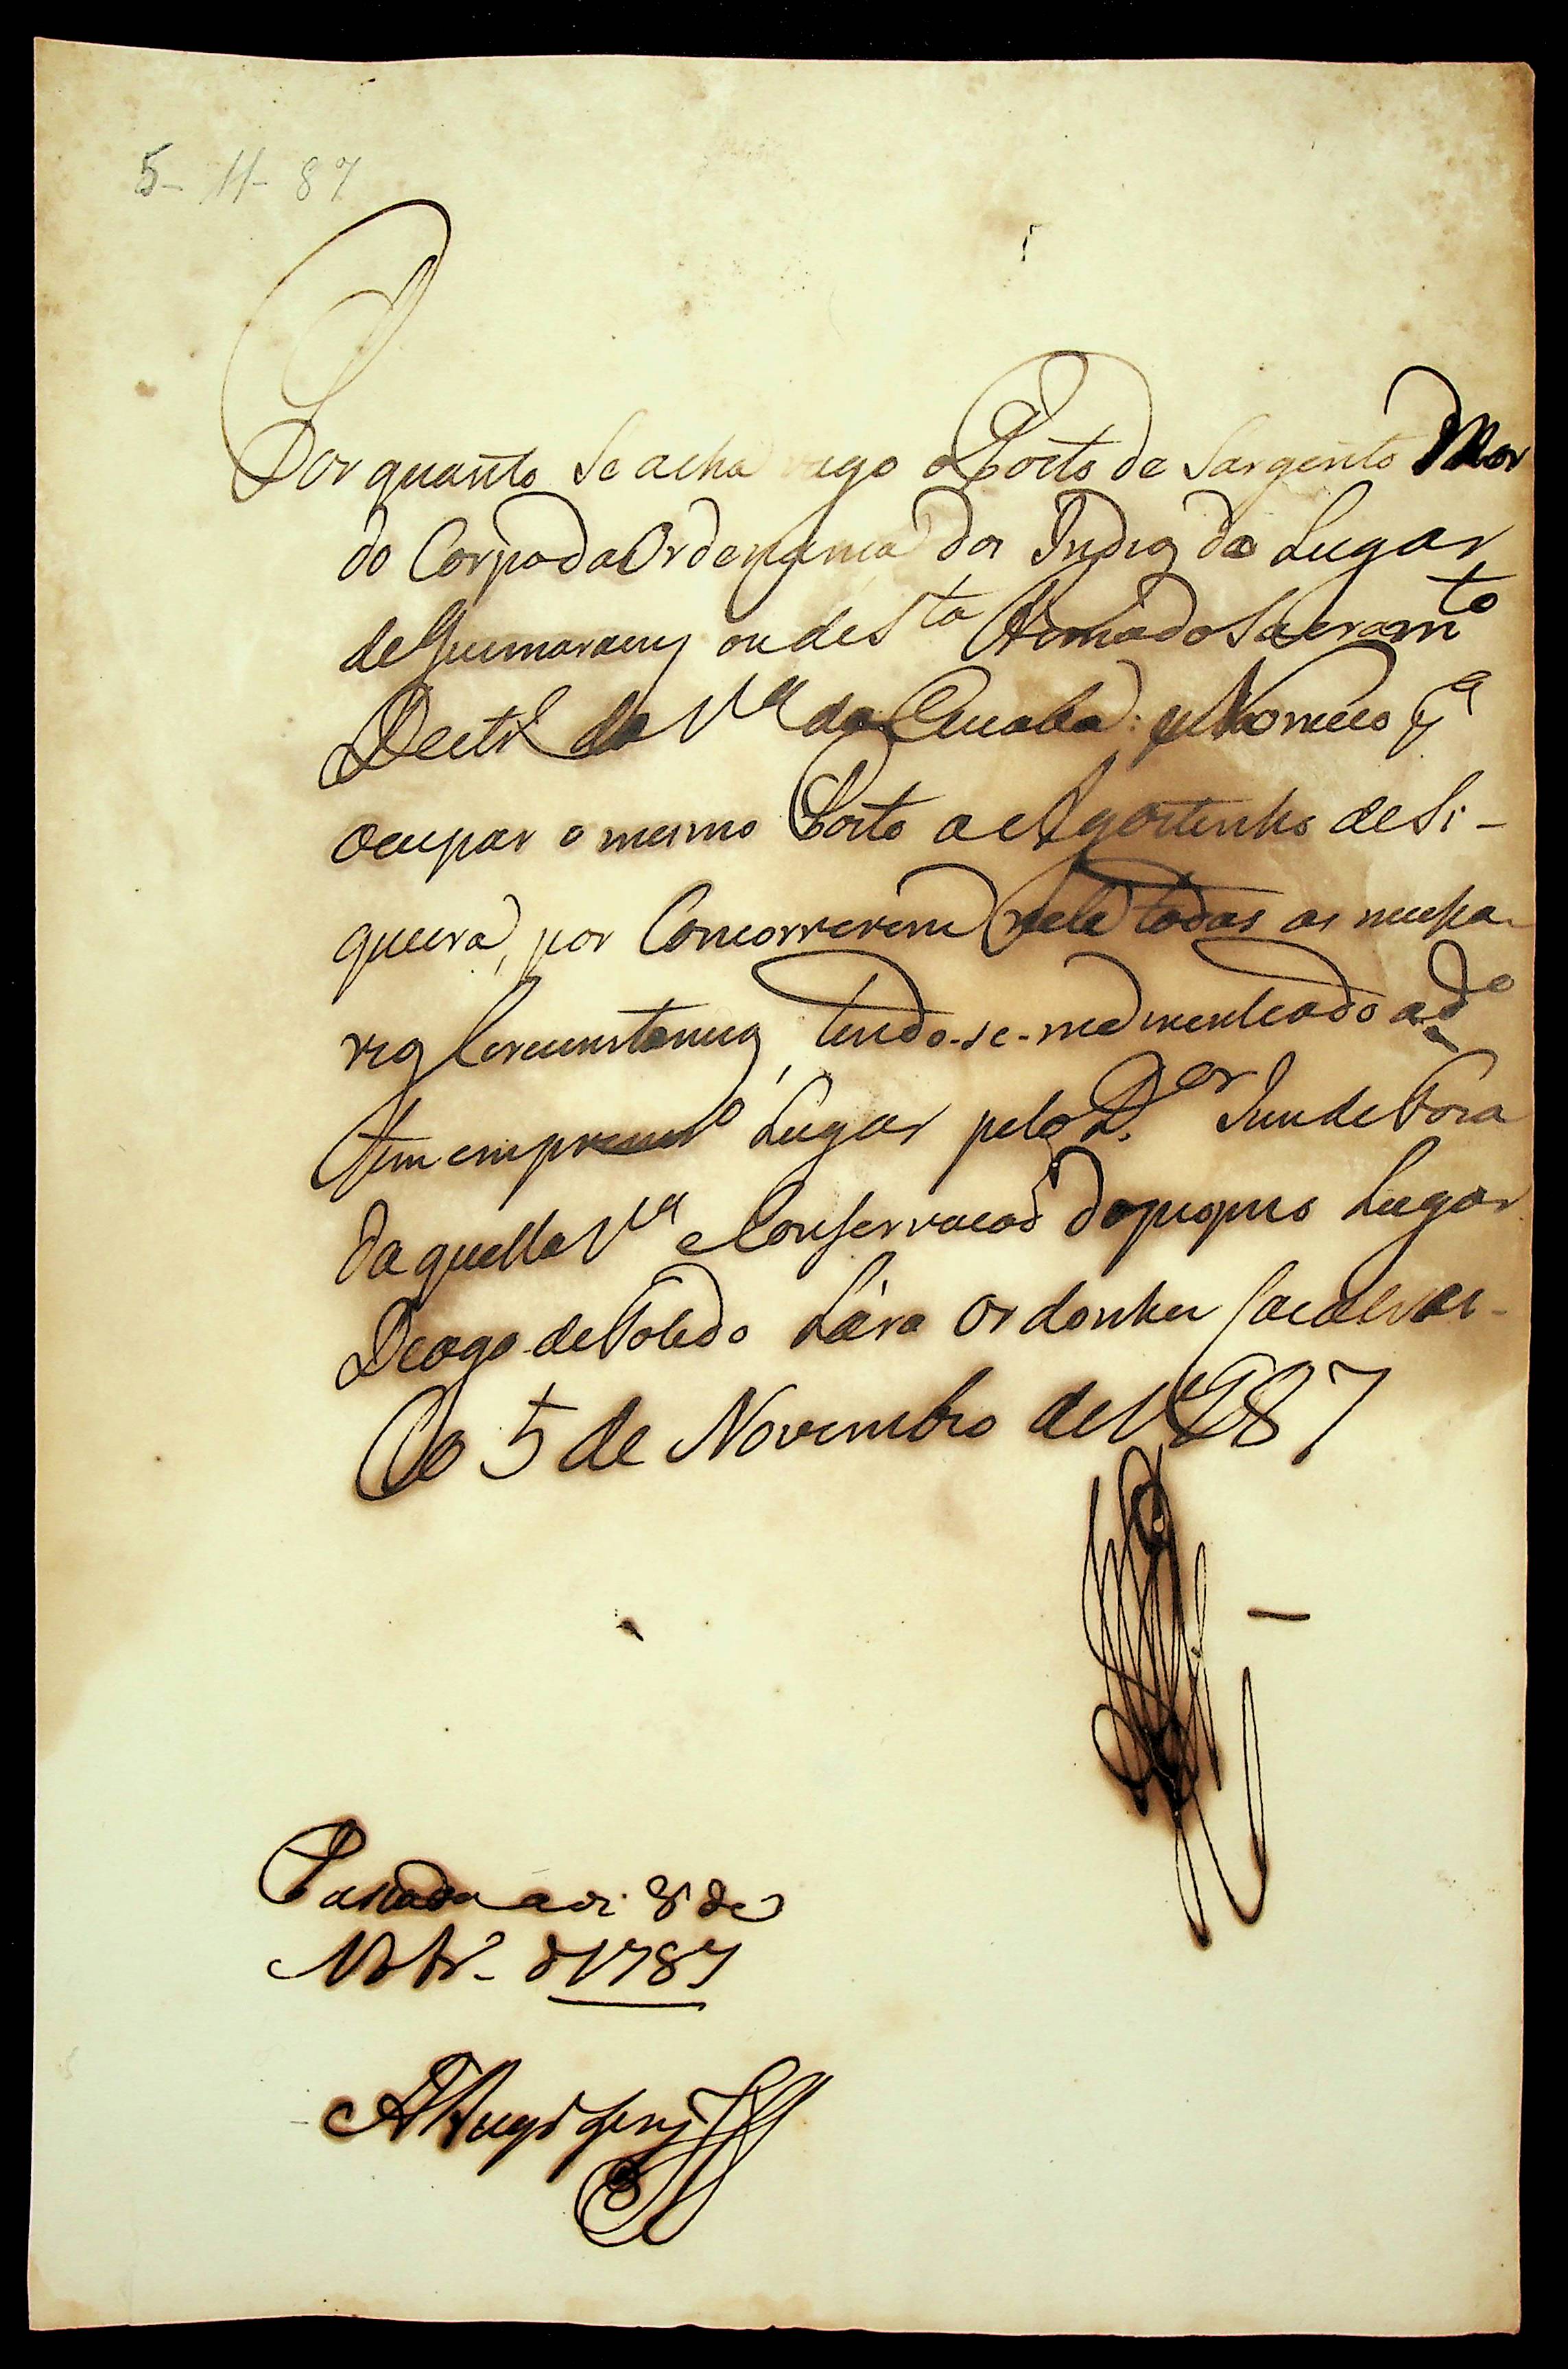 5-11-87
Porquanto Se acha vago o Posto de Sargento Mor
do Corpo da Ordenança dos Indios do Lugar
de Guimaraens ou de Sta Anna do Sacramto
Destro da Va do Cuiabá: Nomeio pa
ocupar o mesmo Posto a Agostinho de Si-
queira, por Concorrerem nele todas as necessa-
rias Circunstancias, tendo-se-me inculcado ad
em primro Lugar pelo Dor Juis de Fora
daquella Va e Conservador do proprio Lugar
Diogo de Toledo Lara Ordonhes
5 de Novembro de 1787
Passada a 8 de
Novbr.o d 1787